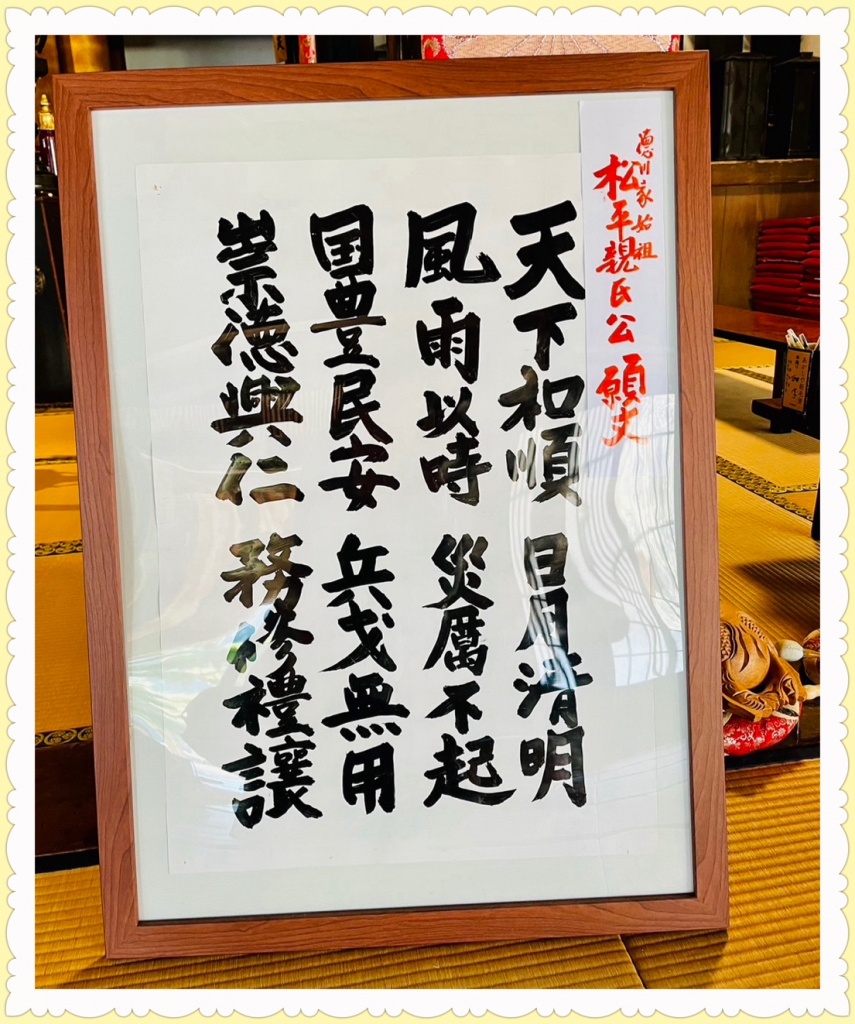 徳川家始祖
松平親氏公 願文
天下和順 日月清明
風雨以時 災厲不起
国豊民安 兵戈無用
崇徳興仁 務修禮讓